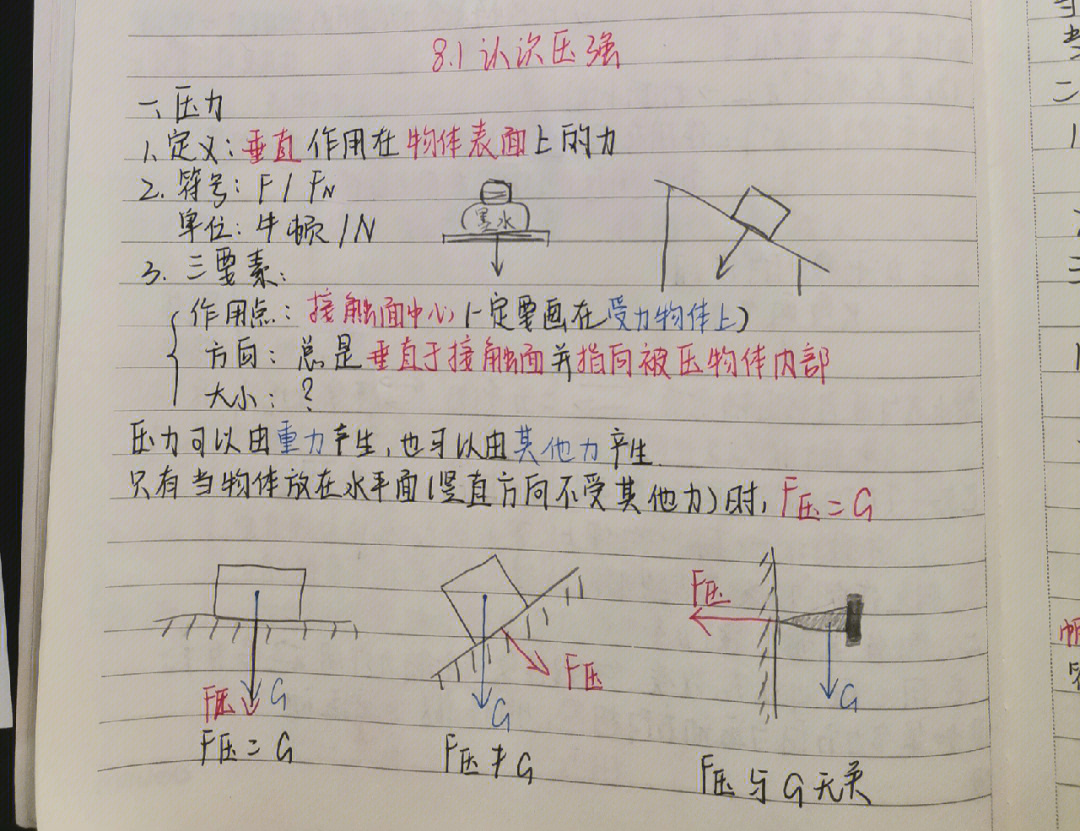 8.1 认次压强
一、压力
1、定义：垂直作用在物体表面上的力
2. 符号：F / FN
单位：牛顿 / N
墨水
3. 三要素：
作用点：接触面中心（一定要画在受力物体上）
方向：总是垂直于接触面并指向被压物体内部
大小：？
压力可以由重力产生，也可以由其他力产生.
只有当物体放在水平面（竖直方向不受其他力）时，F压=G
F压 G
F压=G
F压
G
F压≠G
F压
G
F压与G无关